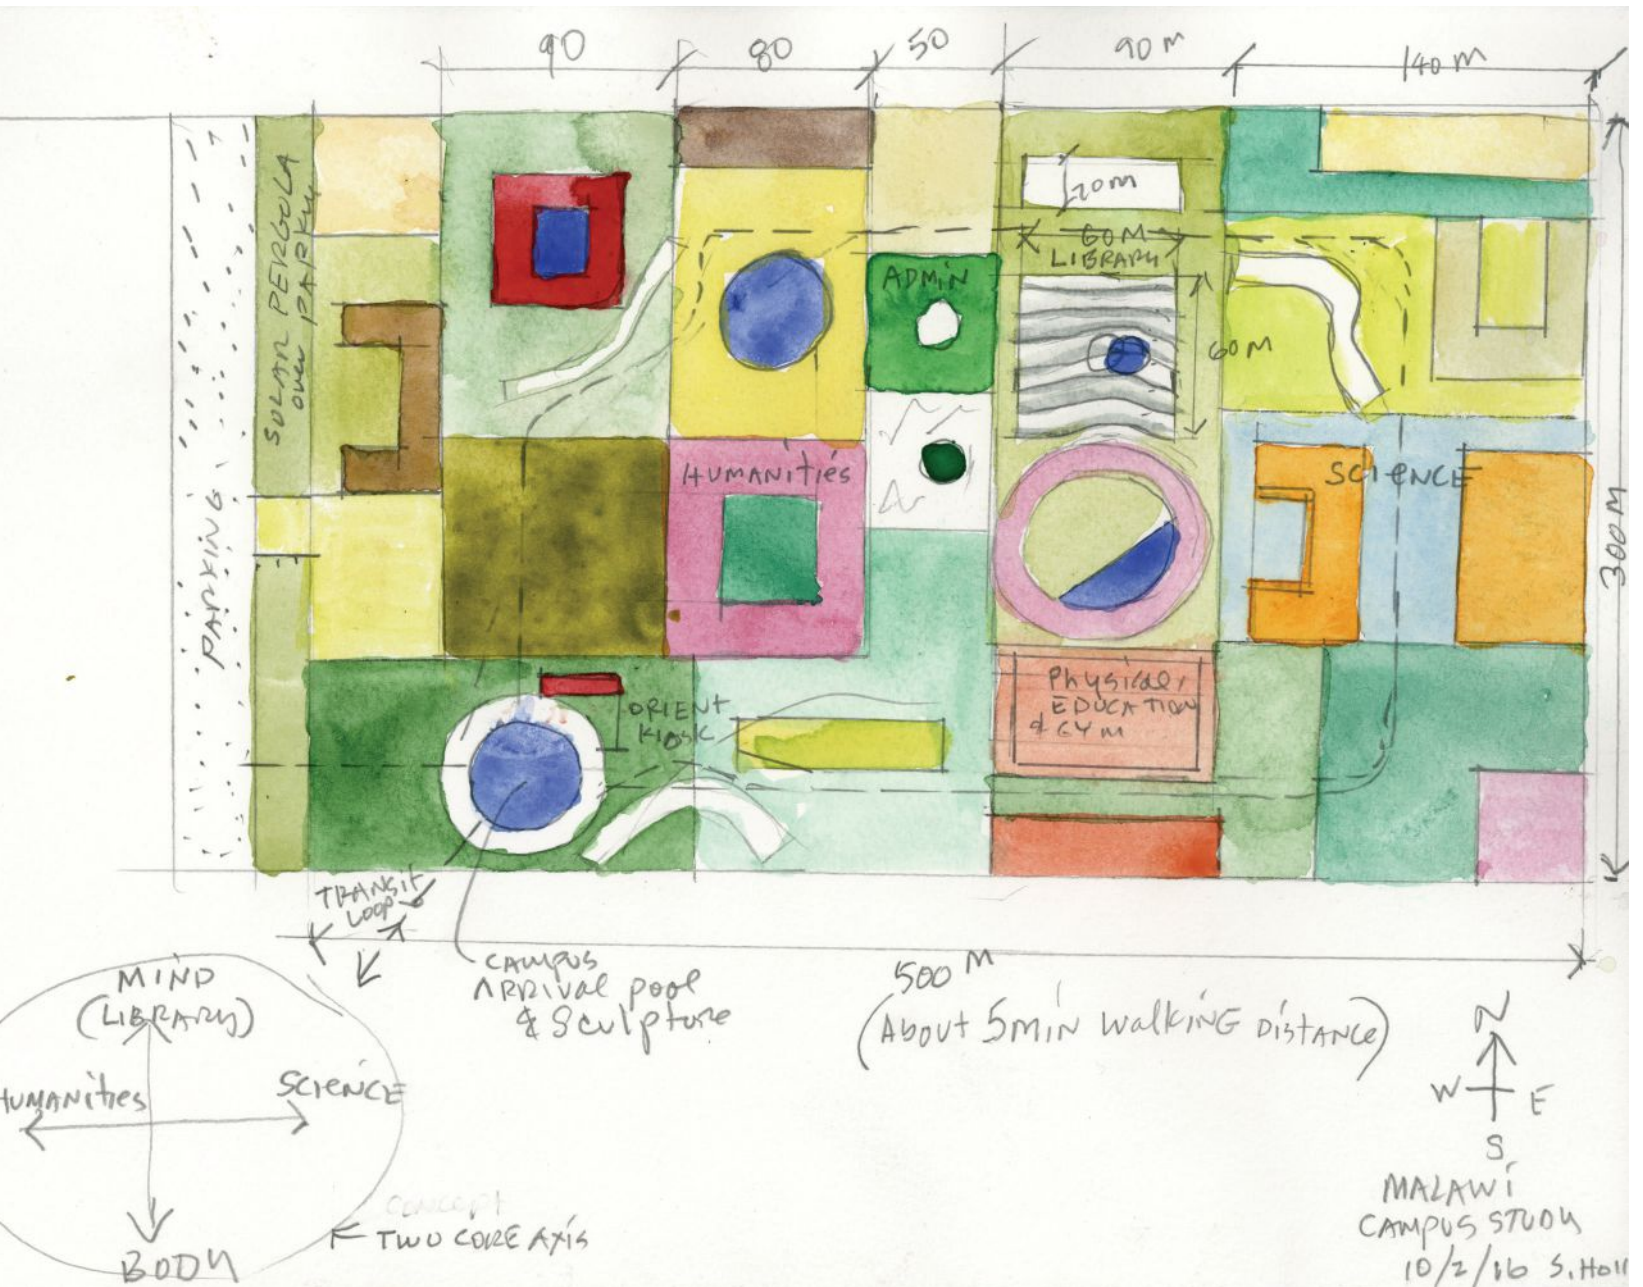 90
80
50
90 M
140 M
SOLAR PERGOLA
over PARKING
PARKING
20M
60M
LIBRARY
ADMIN
60M
HUMANITIES
SCIENCE
300M
ORIENT
KIOSK
Physical
EDUCATION
& GYM
TRANSIT
LOOP
CAMPUS
ARRIVAL pool
& Sculpture
500 M
(About 5min walking Distance)
MIND
(LIBRARY)
HUMANITIES
SCIENCE
BODY
CONCEPT
TWO CORE AXIS
N
W
E
S
MALAWI
CAMPUS STUDY
10/2/16 S. Holl